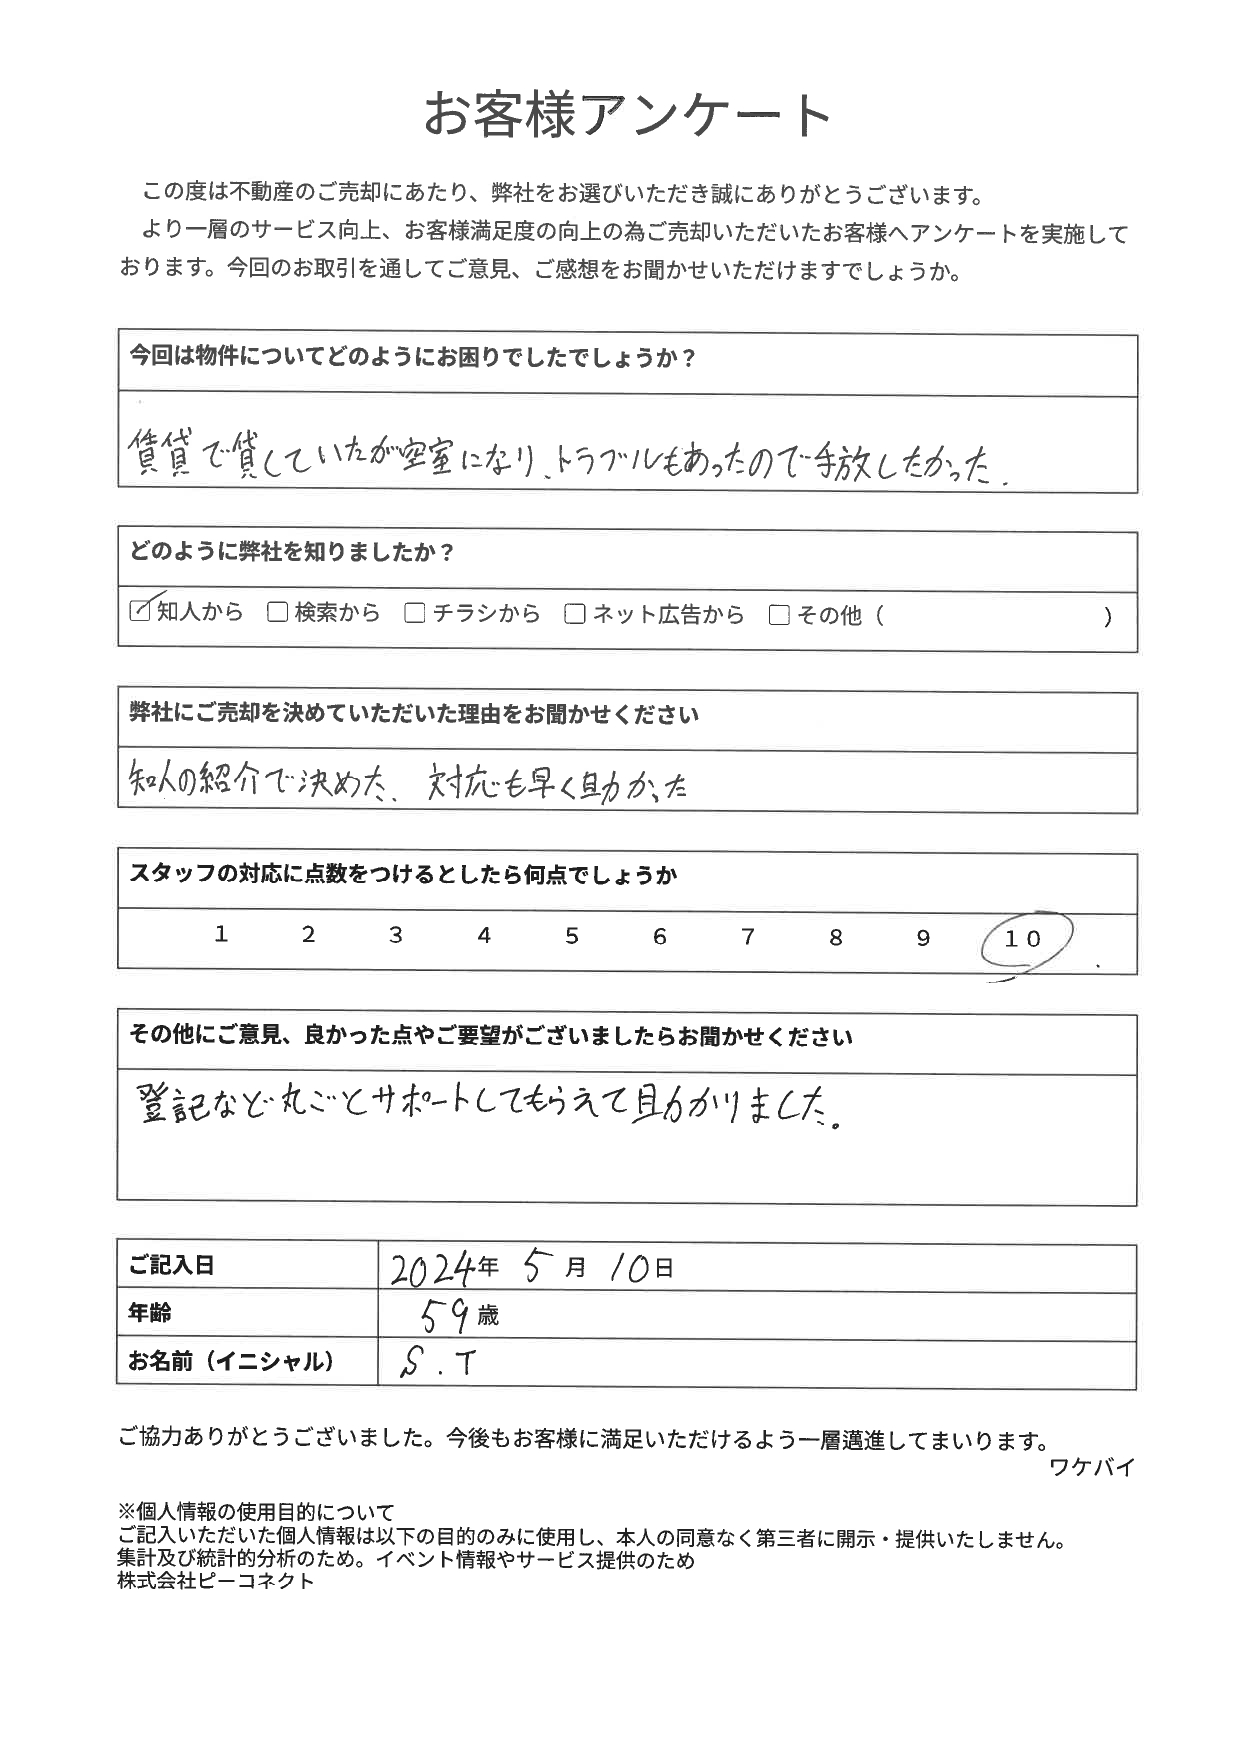 お客様アンケート
この度は不動産のご売却にあたり、弊社をお選びいただき誠にありがとうございます。
より一層のサービス向上、お客様満足度の向上の為ご売却いただいたお客様へアンケートを実施して
おります。今回のお取引を通してご意見、ご感想をお聞かせいただけますでしょうか。
今回は物件についてどのようにお困りでしたでしょうか？
賃貸で貸していたが空室になり、トラブルもあったので手放したかった.
どのように弊社を知りましたか？
☑知人から □検索から □チラシから □ネット広告から □その他（ ）
弊社にご売却を決めていただいた理由をお聞かせください
知人の紹介で決めた、対応も早く助かった
スタッフの対応に点数をつけるとしたら何点でしょうか
1 2 3 4 5 6 7 8 9 10
その他にご意見、良かった点やご要望がございましたらお聞かせください
登記など丸ごとサポートしてもらえて助かりました。
ご記入日 2024年 5月 10日
年齢 59歳
お名前（イニシャル） S.T
ご協力ありがとうございました。今後もお客様に満足いただけるよう一層邁進してまいります。
ワケバイ
※個人情報の使用目的について
ご記入いただいた個人情報は以下の目的のみに使用し、本人の同意なく第三者に開示・提供いたしません。
集計及び統計的分析のため。イベント情報やサービス提供のため
株式会社ピーコネクト